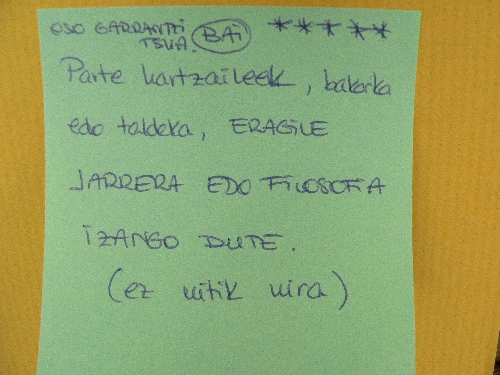 OSO GARRANTZI
TSUA. BAI *****
Parte hartzaileek, bakarka
edo taldeka, ERAGILE
JARRERA EDO FILOSOFIA
IZANGO DUTE.
(ez nitik nira)